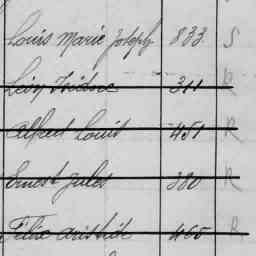 Louis Marie Joseph 833 S
Léon Isidore 311 R
Alfred Louis 451 R
Ernest Jules 380 R
Félix Aristide 465 R